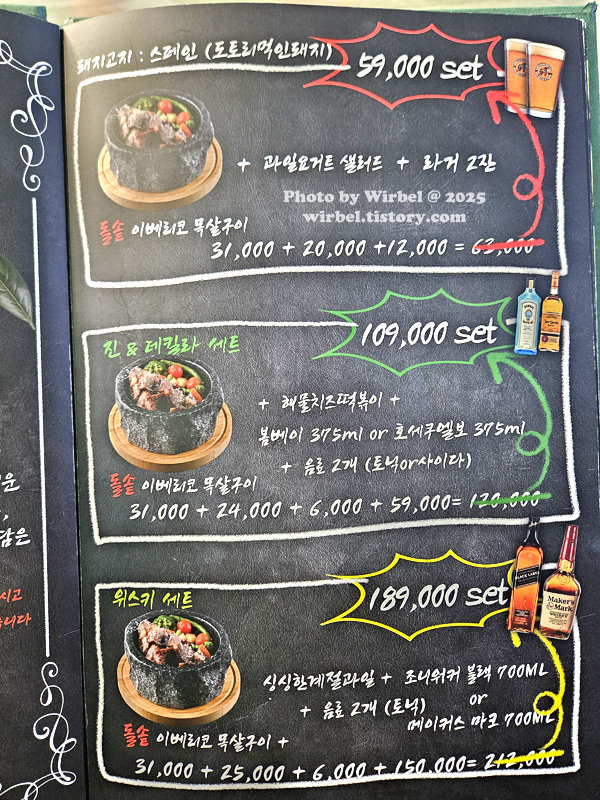 돼지고지 : 스페인 (도토리먹인돼지)
59,000 set
+ 과일요거트 샐러드 + 라거 2잔
Photo by Wirbel @ 2025
wirbel.tistory.com
돌솥 이베리코 목살구이
31,000 + 20,000 +12,000 = 63,000
109,000 set
진 & 데킬라 세트
+ 해물치즈떡볶이 +
봄베이 375ml or 호세쿠엘보 375ml
+ 음료 2개 (토닉or사이다)
돌솥 이베리코 목살구이
31,000 + 24,000 + 6,000 + 59,000= 120,000
189,000 set
BLACK LABEL
Maker's
Mark
위스키 세트
싱싱한계절과일 + 조니워커 블랙 700ML
+ 음료 2개 (토닉) or
메이커스 마크 700ML
돌솥 이베리코 목살구이 +
31,000 + 25,000 + 6,000 + 150,000= 212,000
운
담은
시고
습니다